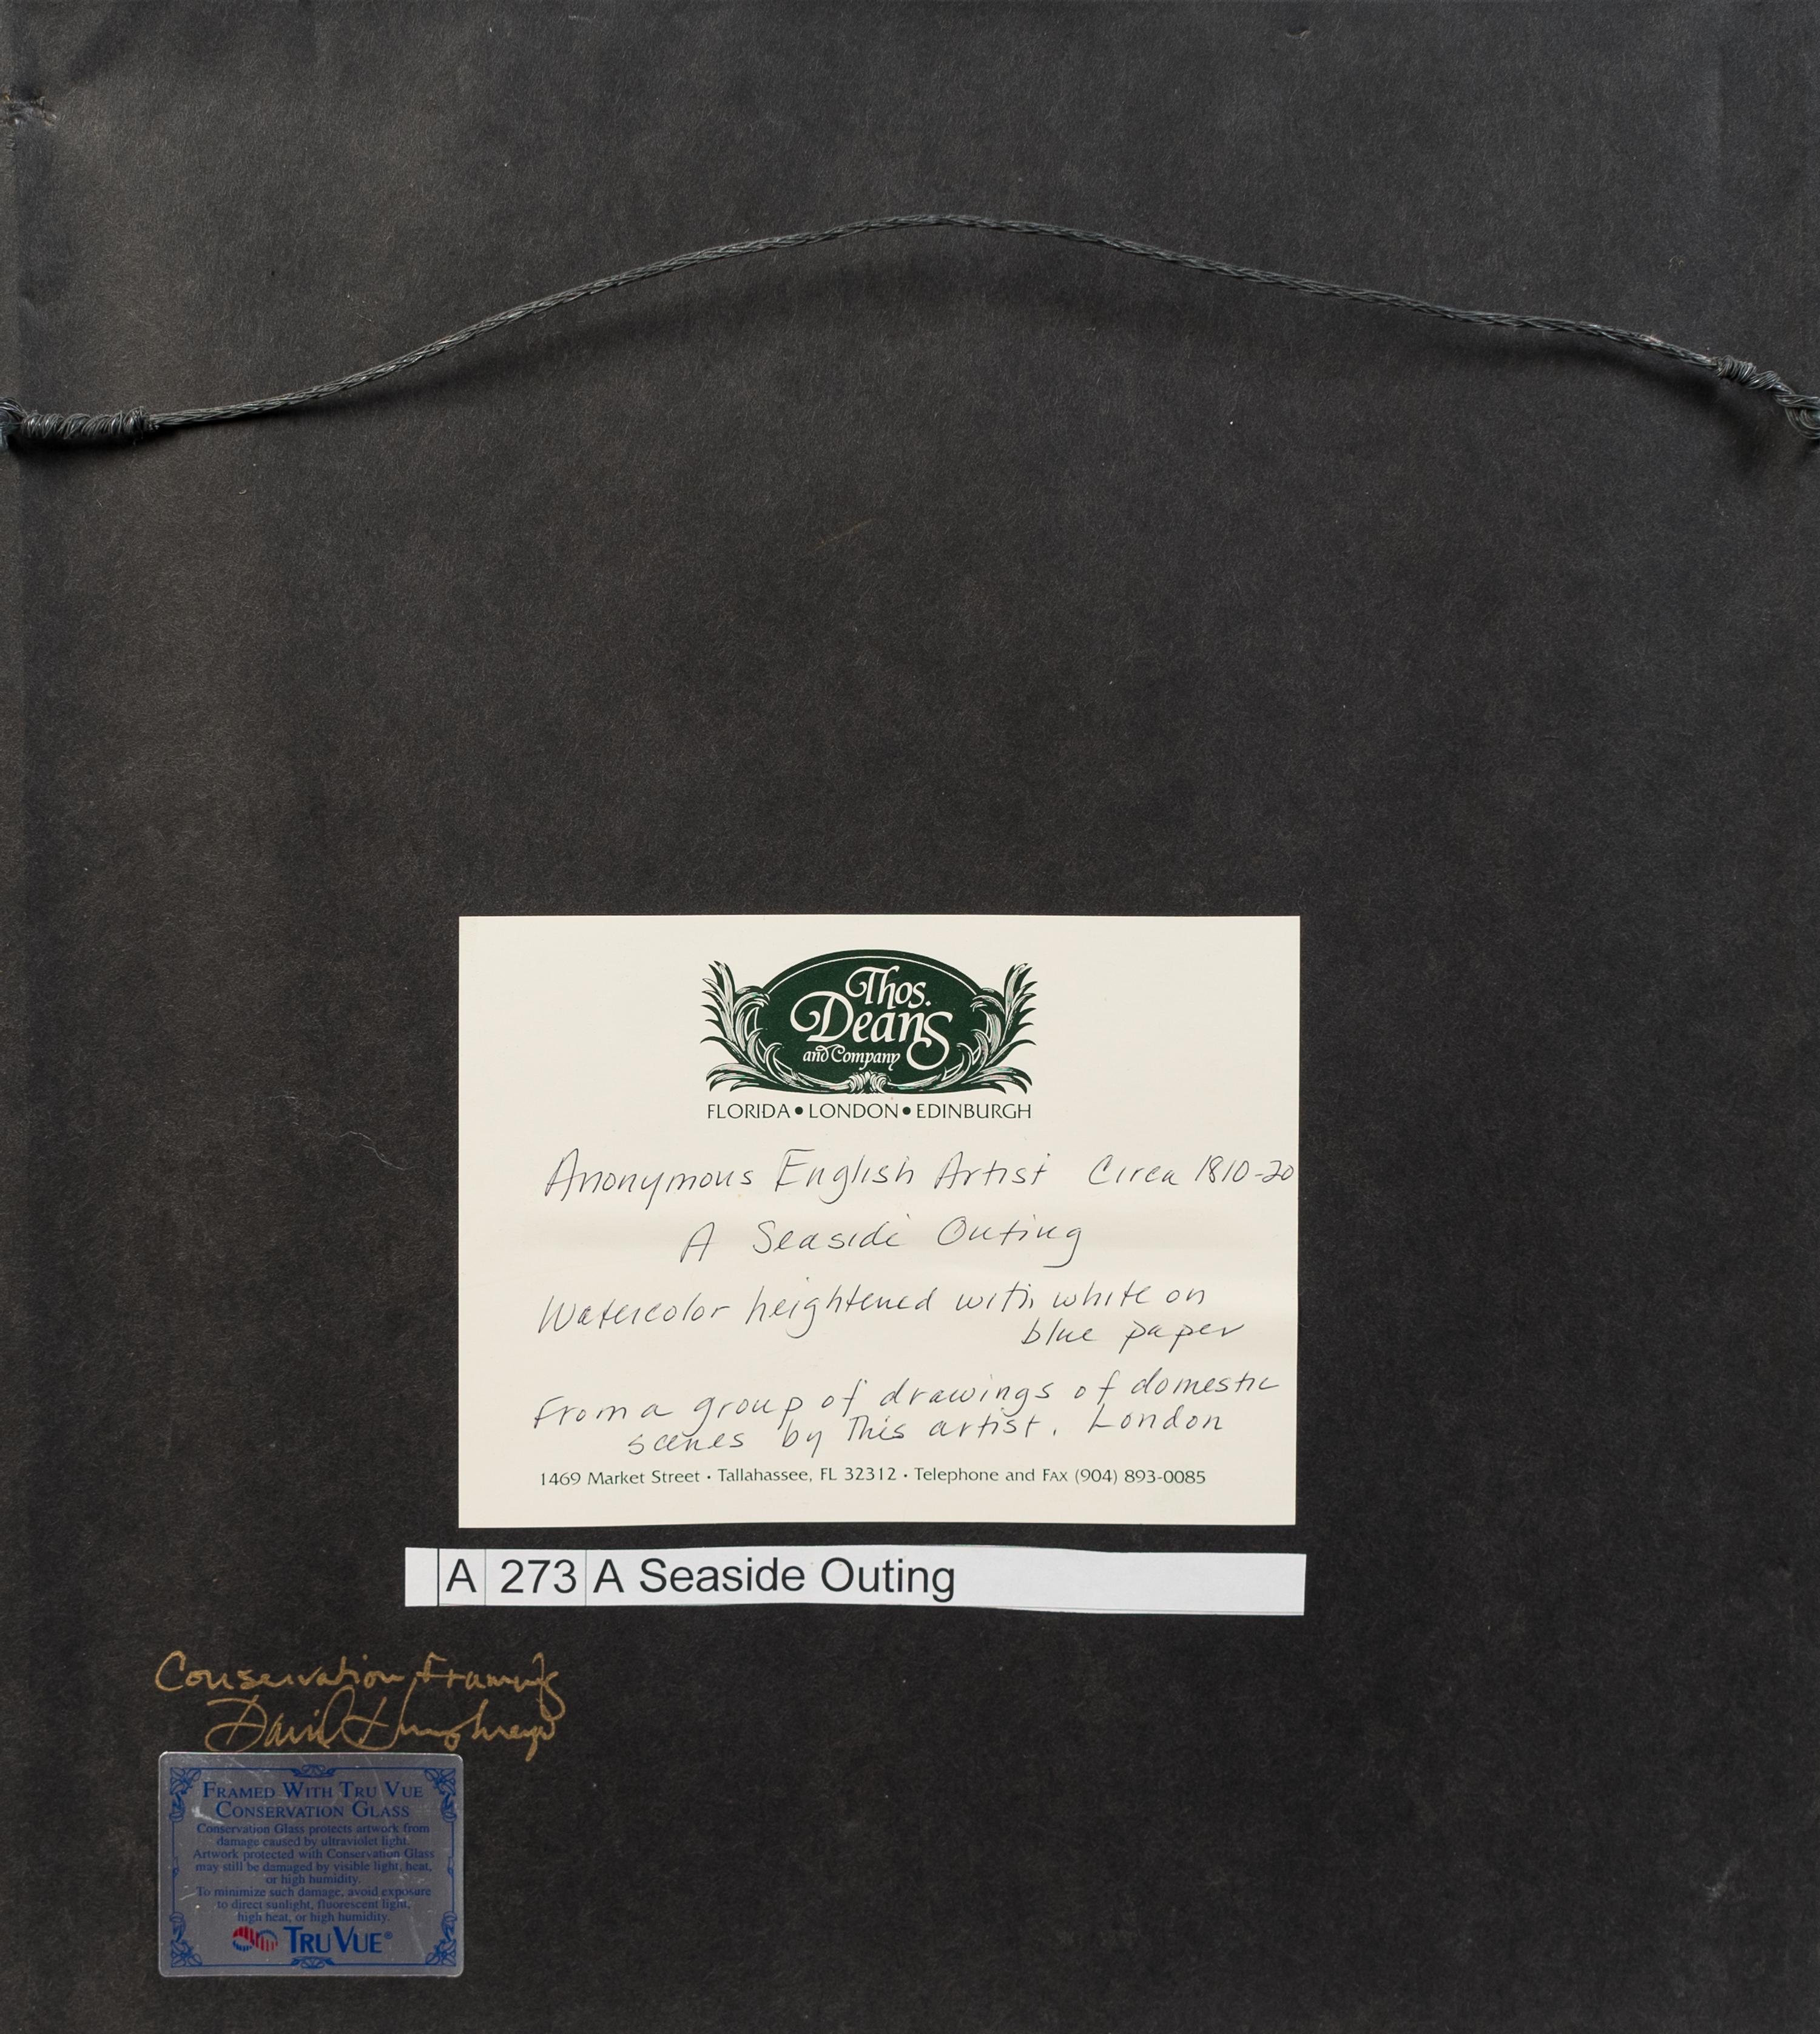 Thos.
Deans
and Company
FLORIDA • LONDON • EDINBURGH
Anonymous English Artist Circa 1810-20
A Seaside Outing
Watercolor heightened with white on
blue paper
From a group of drawings of domestic
scenes by this artist. London
1469 Market Street • Tallahassee, FL 32312 • Telephone and FAX (904) 893-0085
A 273 A Seaside Outing
Conservation Framing
David Humphreys
FRAMED WITH TRU VUE
CONSERVATION GLASS
Conservation Glass protects artwork from
damage caused by ultraviolet light.
Artwork protected with Conservation Glass
may still be damaged by visible light, heat,
or high humidity.
To minimize such damage, avoid exposure
to direct sunlight, fluorescent light,
high heat, or high humidity.
TRU VUE®